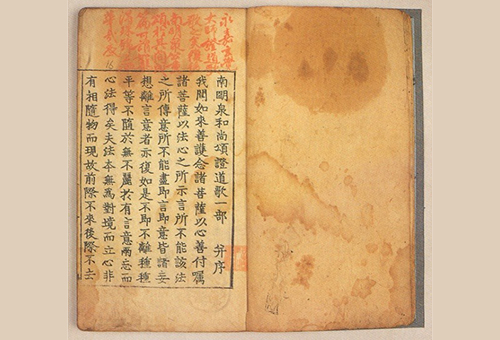 永嘉玄覺
大師證道
南明泉
南明泉和尚頌證道歌一部 并序
我聞如來善護念諸菩薩以心善付囑
諸菩薩以法心之所示言所不能該法
之所傳意所不能盡即言即意皆諸妄
想離言意者亦復如是不即不離種種
平等不隨於無不麗於有言意兩忘而
心法得矣夫法本無爲對境而立心非
有相隨物而現故前際不來後際不去